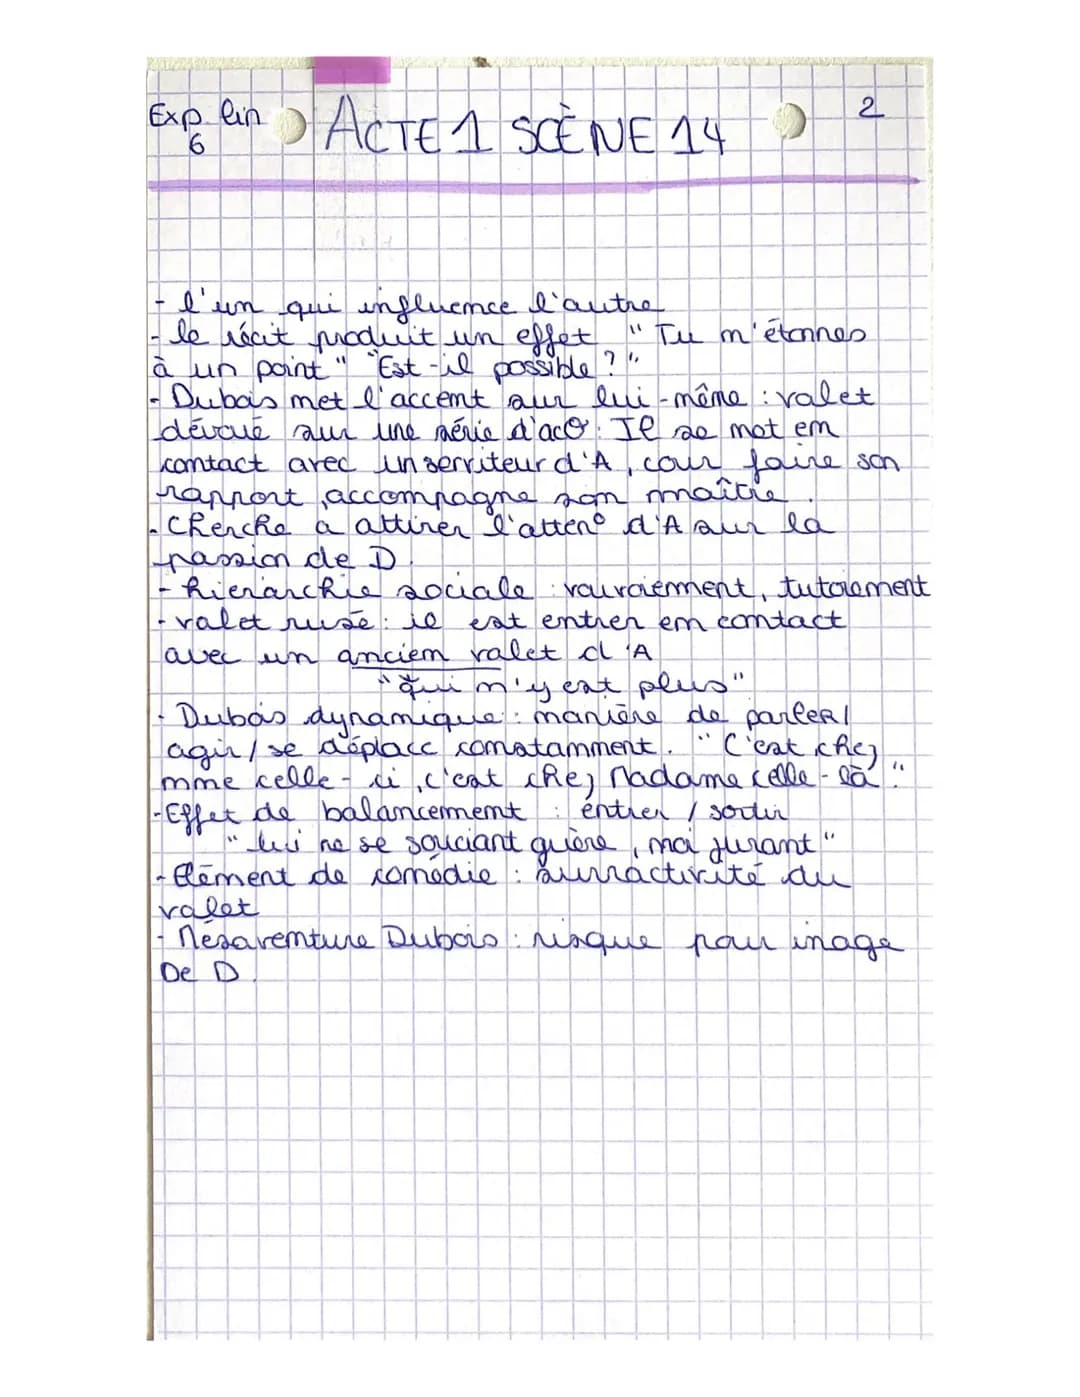 Exp lin
6
ACTE 1 SCÈNE 14
2
- l'un qui influence l'autre
- le récit produit un effet "Tu m'étonnes
à un point" "Est-il possible?"
- Dubois met l'accent sur lui-même : valet
dévoué sur une série d'ac°. Il se met en
contact avec un serviteur d'A, cour faire son
rapport, accompagne son maître.
- Cherche à attirer l'atten° d'A sur la
passion de D.
- hiérarchie sociale : vouvoiement, tutoiement
- valet rusé : il est entrer en contact
avec un anciem valet d'A
"qui n'y est plus"
- Dubois dynamique : manière de parler/
agir/se déplace constamment. "C'est chez
mme celle-ci, c'est chez Madame celle-là".
- Effet de balancement : entrer / sortir
"lui ne se souciant guère, moi jurant"
- Elément de comédie : surractivité du
valet
- Mésaventure Dubois : risque pour inage
De D.